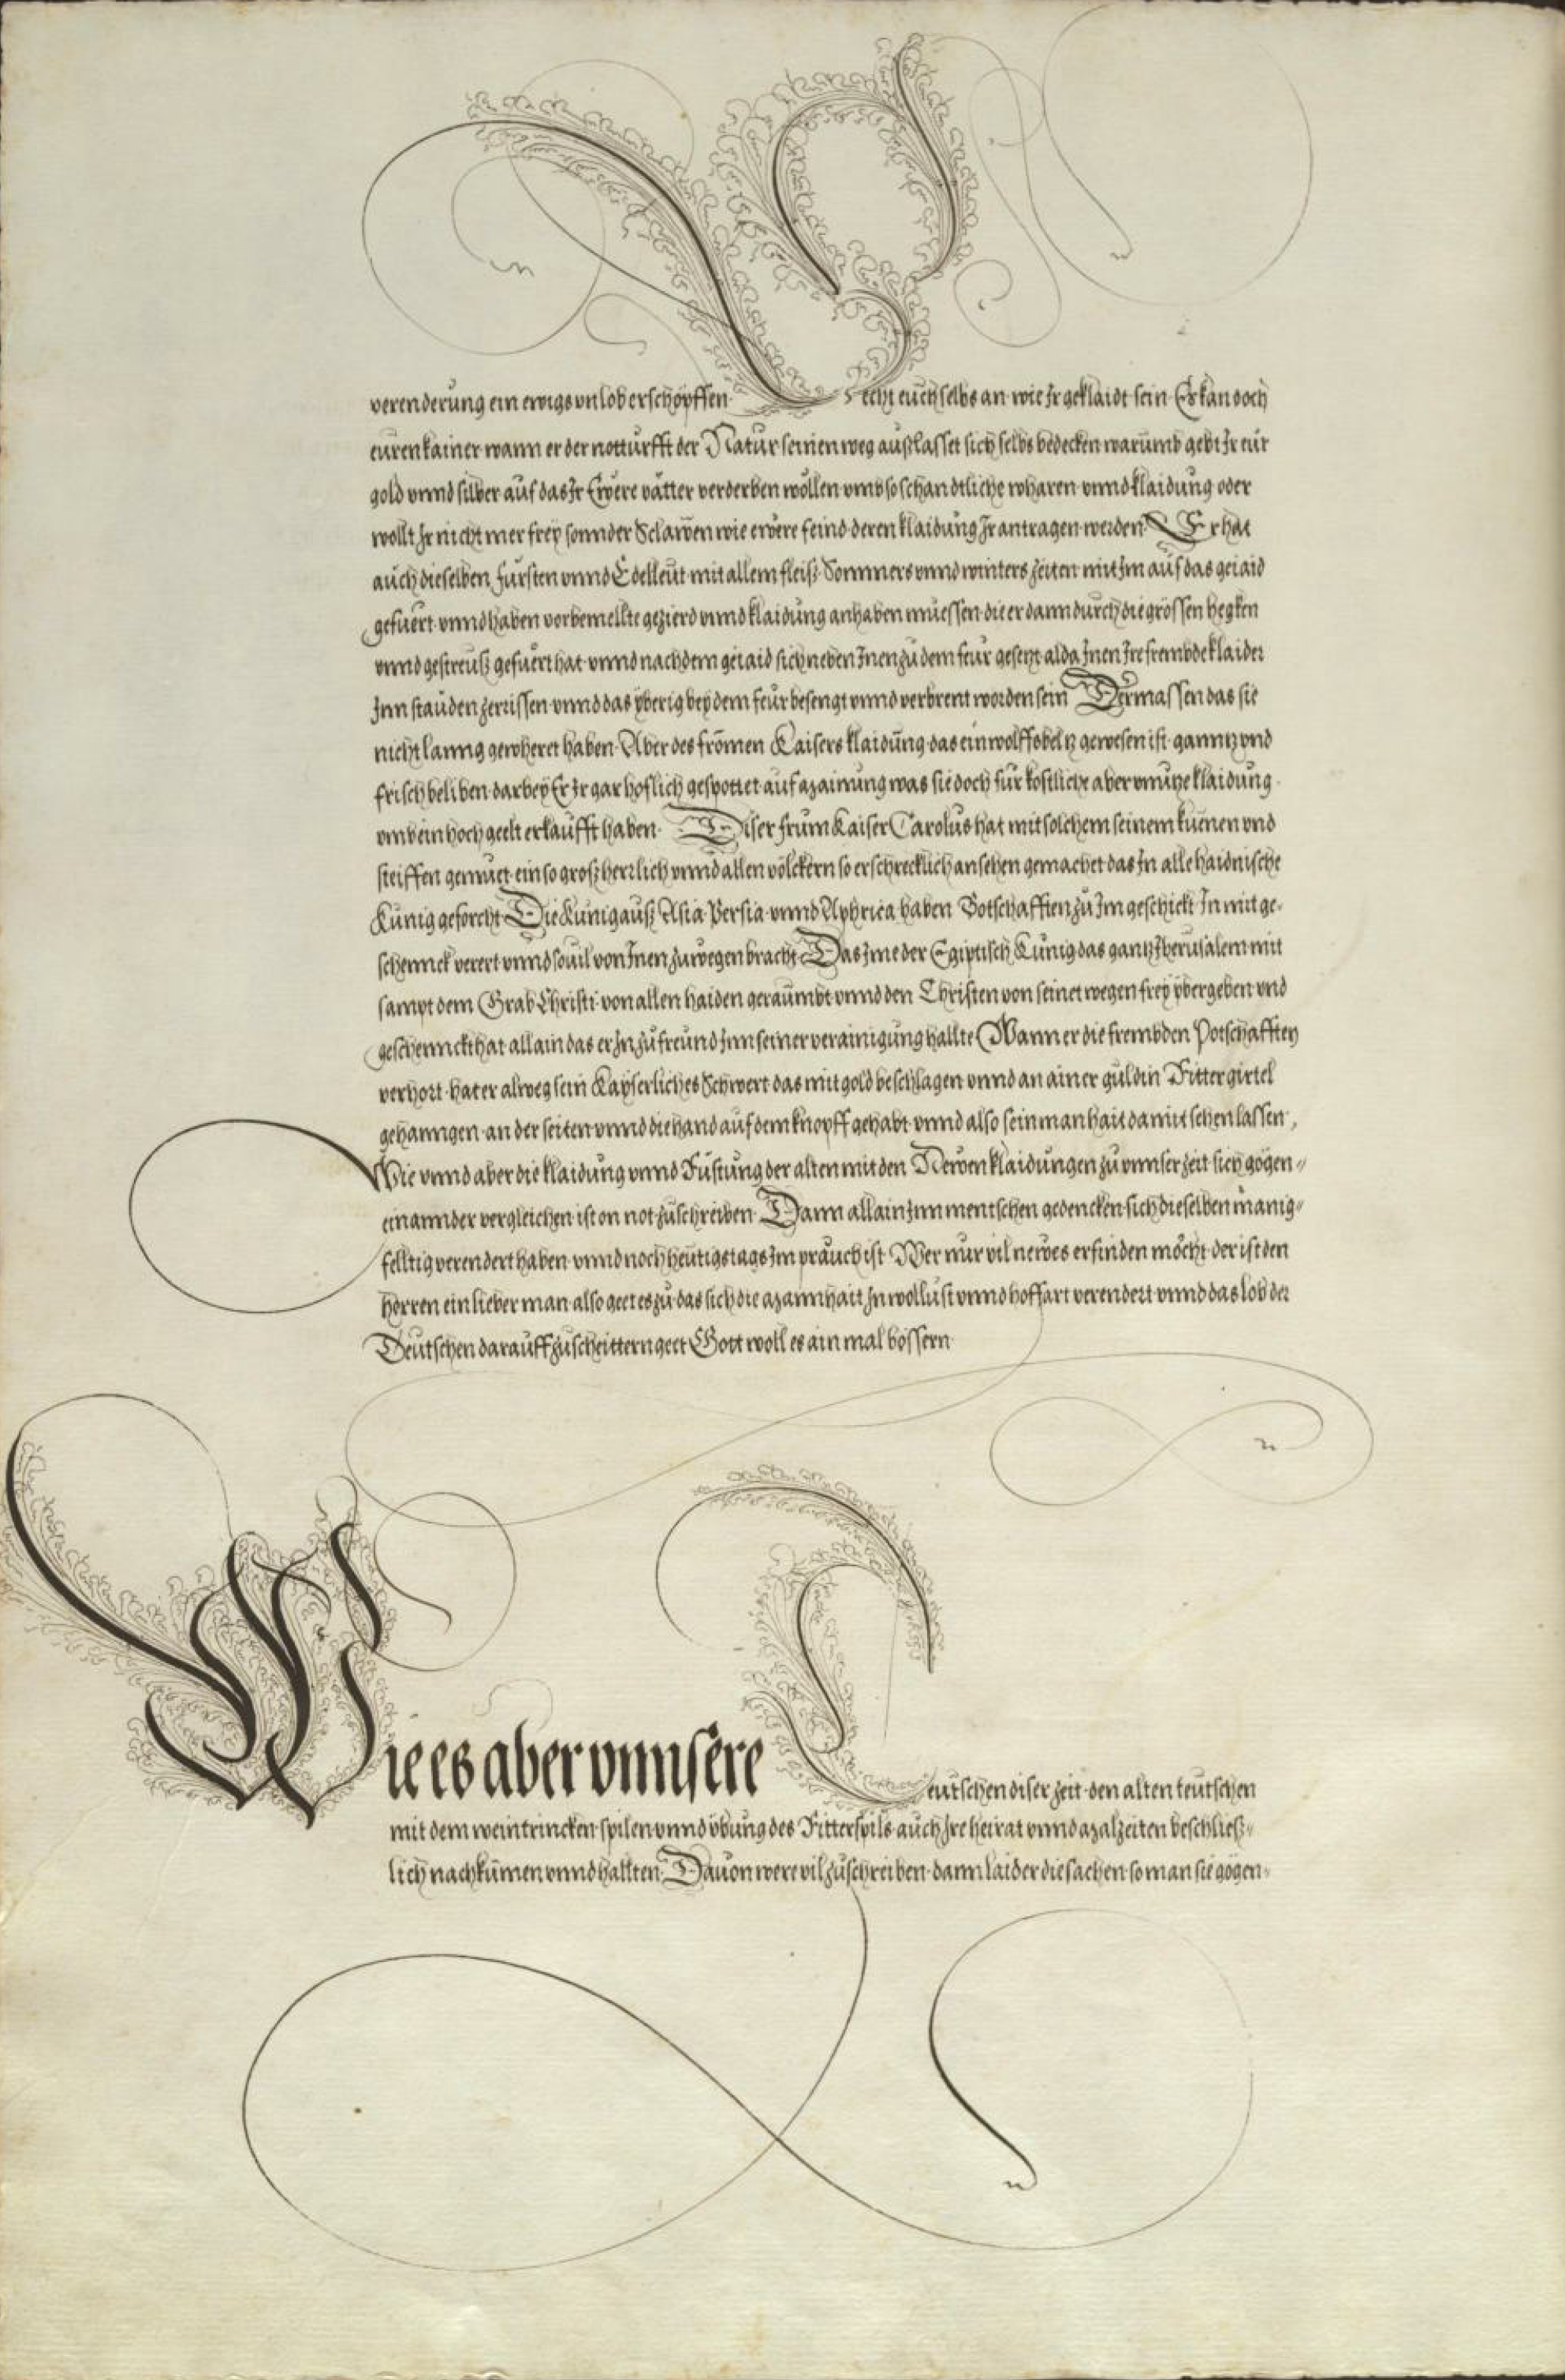 verenderung ein ewigs vnlob erschöpffen. Secht euch selbs an wie Ir geklaidt sein Es kan doch
euren kainer wann er der notturfft der Natur seinen weg außlasset sich selbs bedecken warumb gebt Ir eur
gold vnnd silber auf das Ir Ewere vätter verderben wöllen vmb so schandtliche wharen vnnd klaidung oder
wollt Ir nicht mer frey sonnder Sclawen wie ewere feind deren klaidung Ir antragen werden. Er hat
auch dieselben fürsten vnnd Edelleut mit allem fleiß Sommers vnnd winters zeiten mit Im auf das geiaid
gefuert vnnd haben vorbemellte gezierd vnnd klaidung anhaben muessen die er dann durch die grössen hegken
vnnd gestreuß gefuert hat vnnd nach dem geiaid sich neben Inen zu dem feur gesetzt alda Inen Ire frembde klaider
Inn stauden zerrissen vnnd das yberig bey dem feur besengt vnnd verbrent worden sein Dermassen das sie
nicht lanng geweret haben. Aber des fromen Kaisers klaidung das ein wolffsbeltz gewesen ist ganntz vnd
frisch beliben darbey Er Ir gar hoflich gespottet auf azaigung was sie doch fur kostliche aber vnnutze klaidung
vmb ein hoch geelt erkaufft haben. Diser frum Kaiser Carolus hat mit solchem seinem kuenen vnd
steiffen gemuet ein so groß herrlich vnnd allen völckern so erschrecklich ansehen gemachet das In alle haidnische
Künig geforcht. Die Künig auß Asia Persia vnnd Aphrica haben Botschafften zu Im geschickt In mit ge-
schennck verert vnnd souil von Inen zuwegen bracht. Das Ime der Egiptisch Künig das gantz Iherusalem mit
sampt dem Grab Christi von allen haiden geraumbt vnnd den Christen von seinet wegen frey ybergeben vnd
geschennckt hat allain das er In zu freund Inn seiner verainigung hallte. Wann er die frembden Potschafften
verhort hat er alweg sein Kayserliches Schwert das mit gold beschlagen vnnd an ainer guldin Rittergirtel
gehanngen an der seiten vnnd die hand auf dem knopff gehabt vnnd also sein manhait damit sehen lassen,
Wie vnnd aber die klaidung vnnd Rüstung der alten mit den Newen klaidungen zu vnnser zeit sich gögen-
einannder vergleichen ist on not zuschreiben. Dann allain Inn mentschen gedencken sich dieselben manig-
felltig verendert haben vnnd noch heutigs tags Im prauch ist. Wer nur vil newes erfinden möcht der ist den
herren ein lieber man also geet es zu das sich die mannhait In wollust vnnd hoffart verendert vnnd das lob der
Deutschen darauff zu scheittern geet Gott woll es ain mal bössern.
Wie es aber vnnsere Teutschen diser zeit den alten teutschen
mit dem weintrincken spilen vnnd übung des Ritterspils auch Ire heirat vnnd malzeiten beschließ-
lich nachkumen vnnd hallten. Dauon were vil zuschreiben dann laider die sachen so man sie gögen-